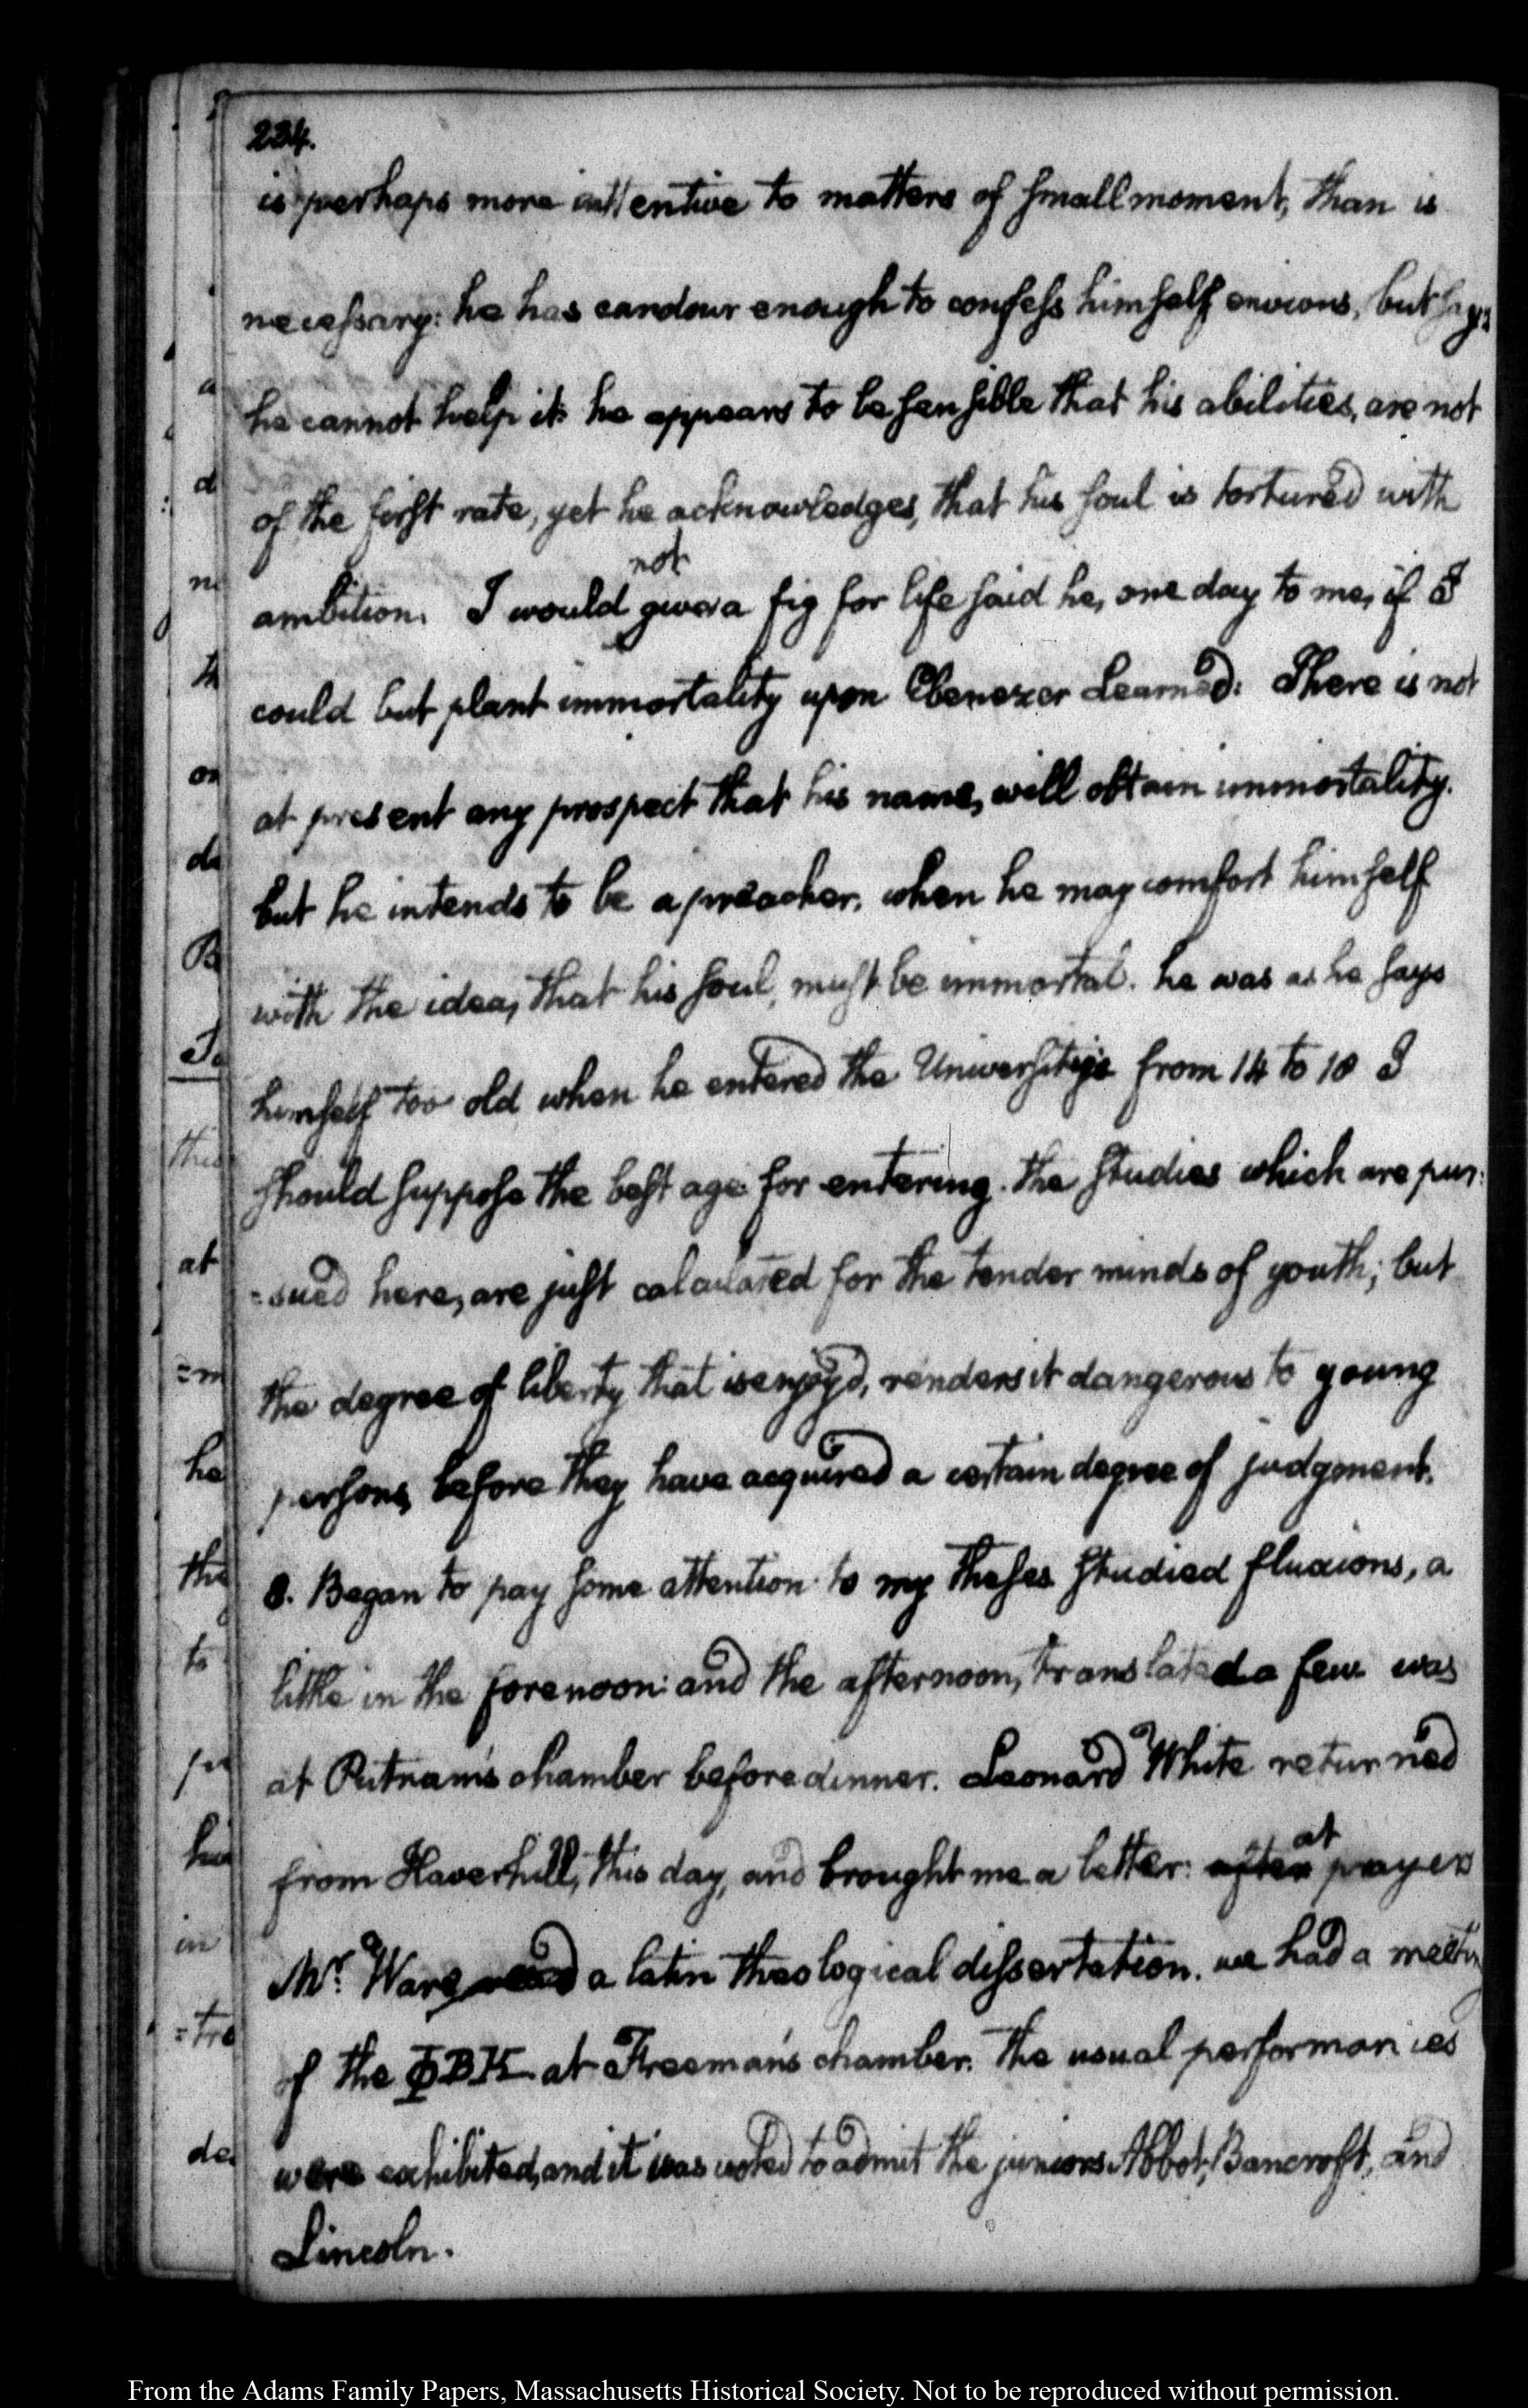 234.
is perhaps more attentive to matters of small moment, than is
necessary: he has candour enough to confess himself envious, but says
he cannot help it: he appears to be sensible that his abilities, are not
of the first rate, yet he acknowledges, that his soul is tortured with
not
ambition. I would give a fig for life said he, one day to me, if I
could but plant immortality upon Ebenezer Learned: There is not
at present any prospect that his name, will obtain immortality.
but he intends to be a preacher, when he may comfort himself
with the idea, that his soul, must be immortal. he was as he says
himself too old when he entered the University from 14 to 18 I
should suppose the best age for entering. the studies which are pur:
=sued here, are just calculated for the tender minds of youth; but
the degree of liberty that is enjoy'd, renders it dangerous to young
persons, before they have acquired a certain degree of judgment.
8. Began to pay some attention to my Theses studied fluxions, a
little in the forenoon: and the afternoon, translated a few was
at Putnam's chamber before dinner. Leonard White returned
at
from Haverhill, this day, and brought me a letter: after prayers
Mr. Ware read a latin theological dissertation. we had a meeting
of the ΦBK at Freeman's chamber. The usual performances
were exhibited, and it was voted to admit the juniors Abbot, Bancroft, and
Lincoln.
From the Adams Family Papers, Massachusetts Historical Society. Not to be reproduced without permission.